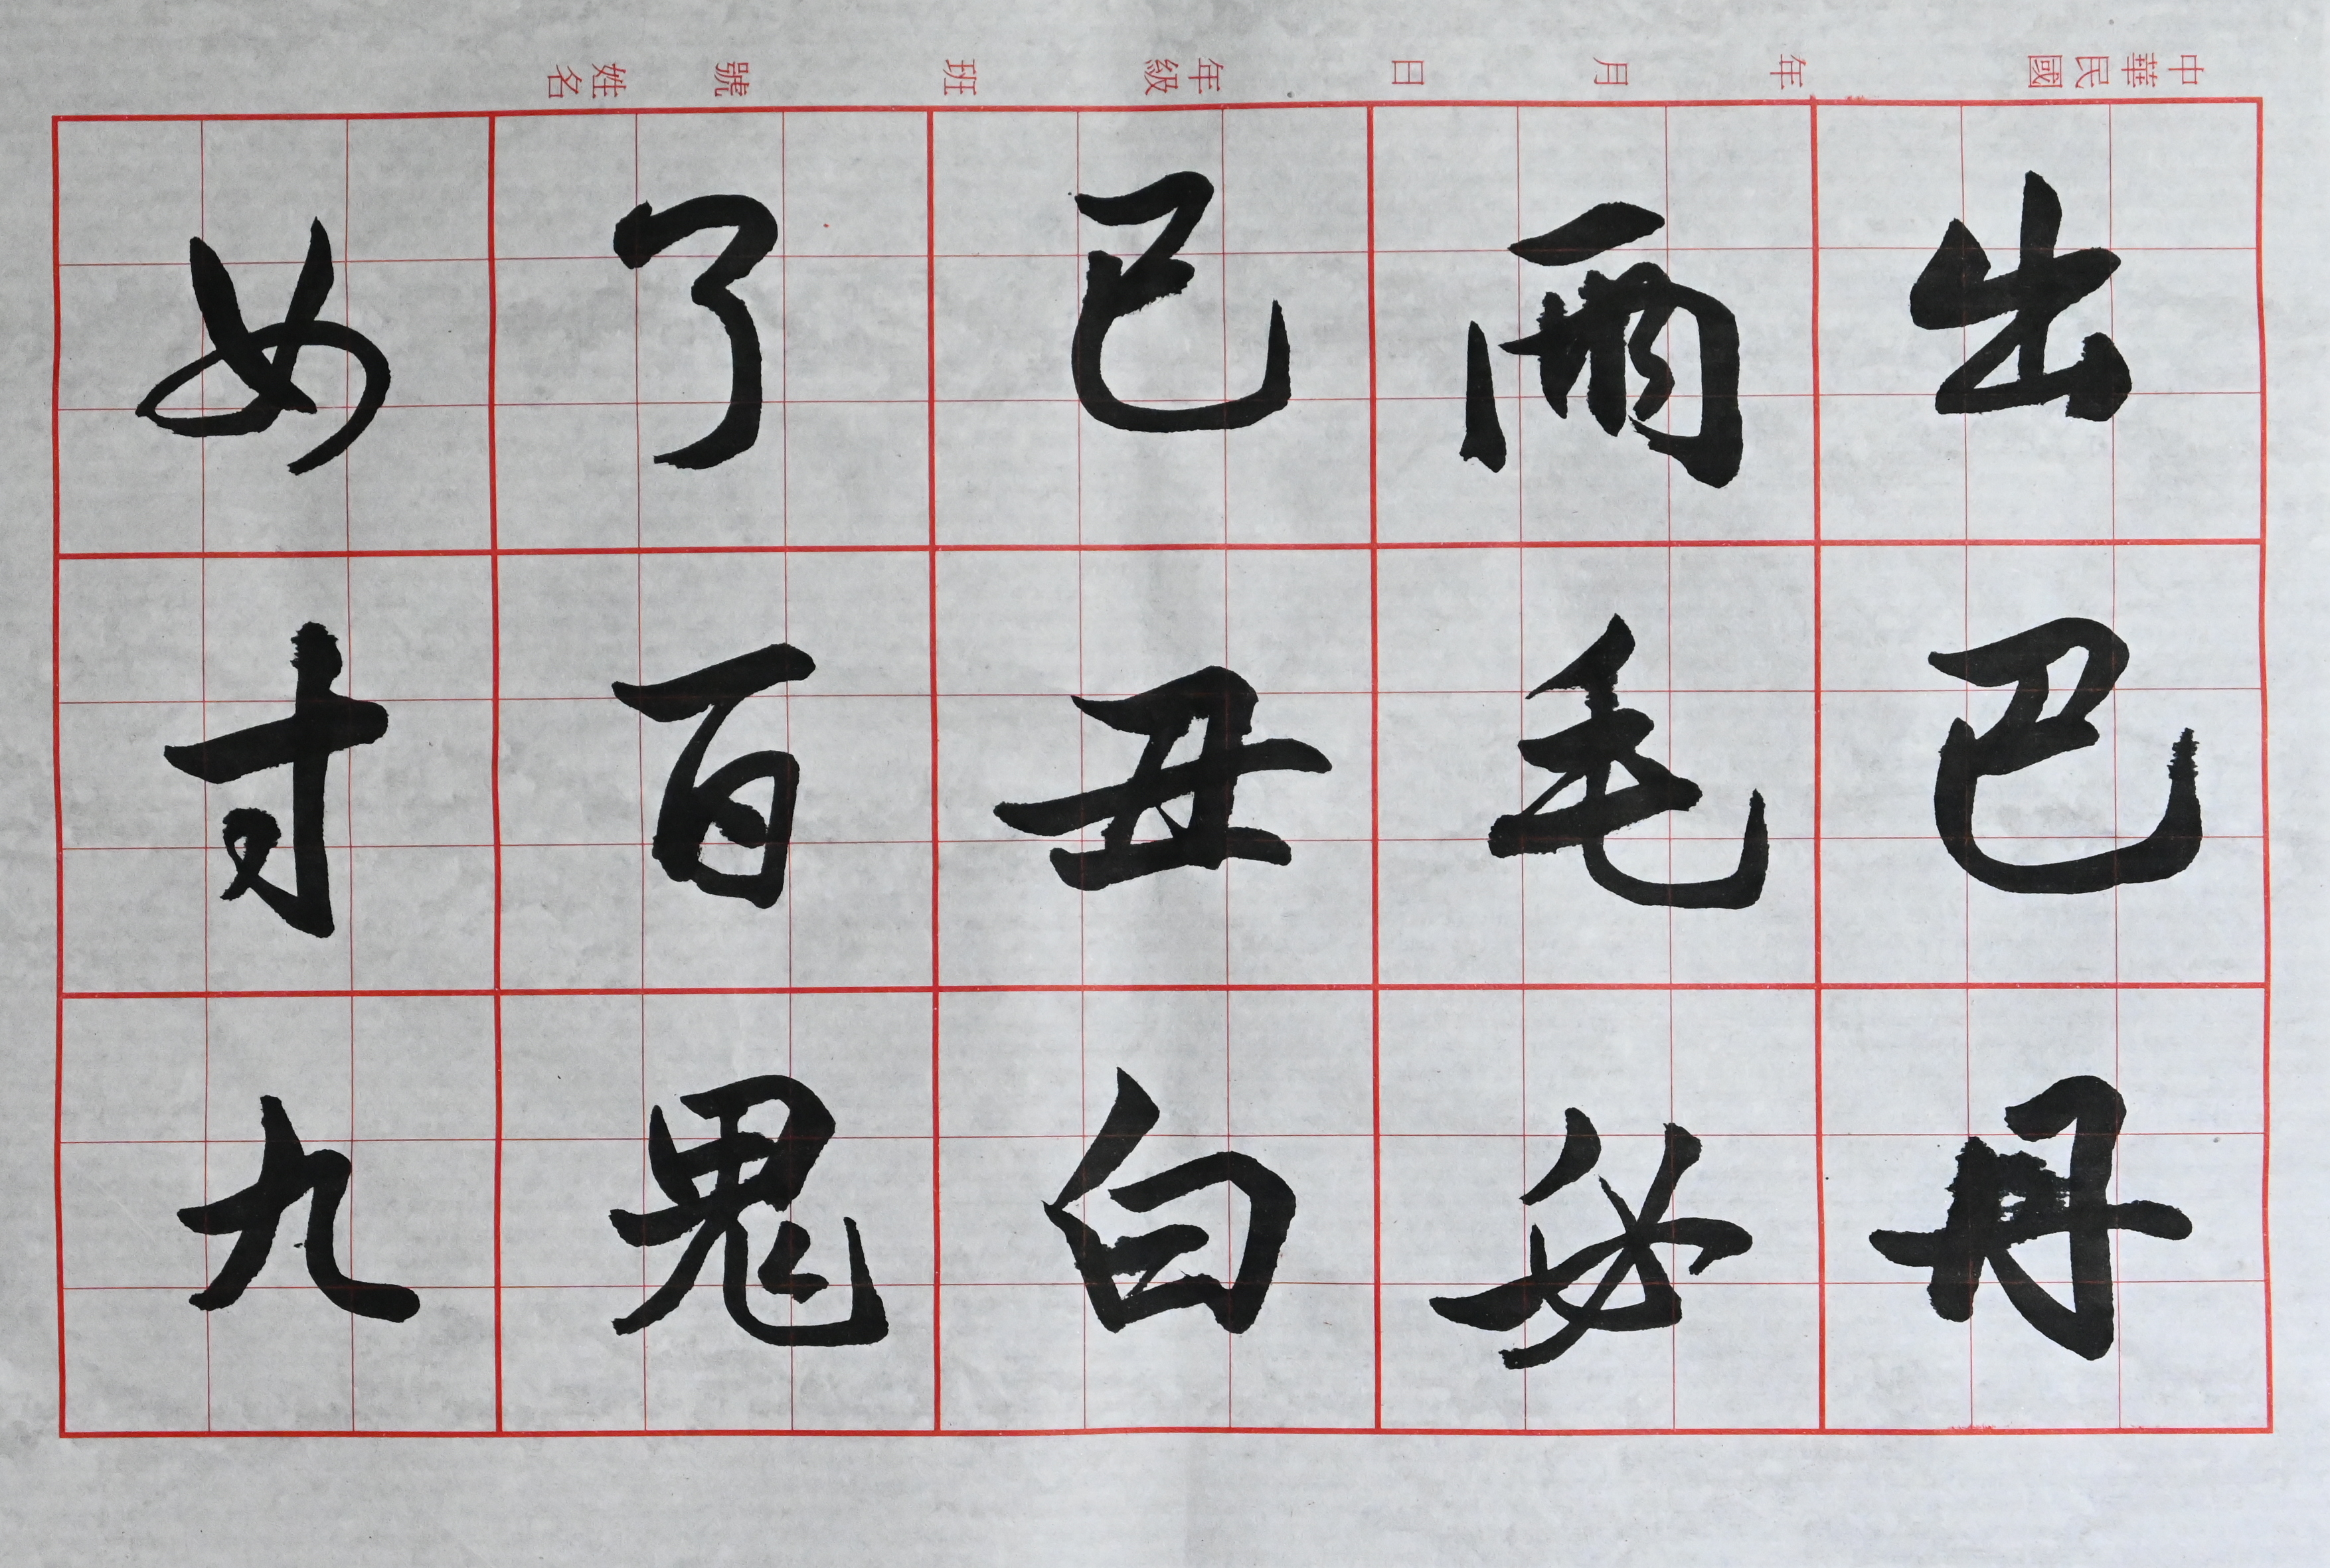 中華民國 年 月 日 年級 班 號 姓名
出巴丹
雨毛必
已丑白
了百鬼
女寸九